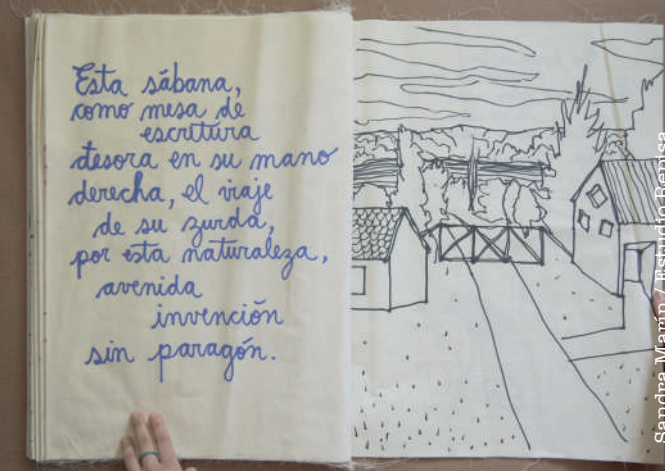 Esta sábana,
como mesa de
escritura
tesora en su mano
derecha, el viaje
de su zurda,
por esta naturaleza,
avenida
invención
sin paragón.
Sandra Marín / Estudio Revisa